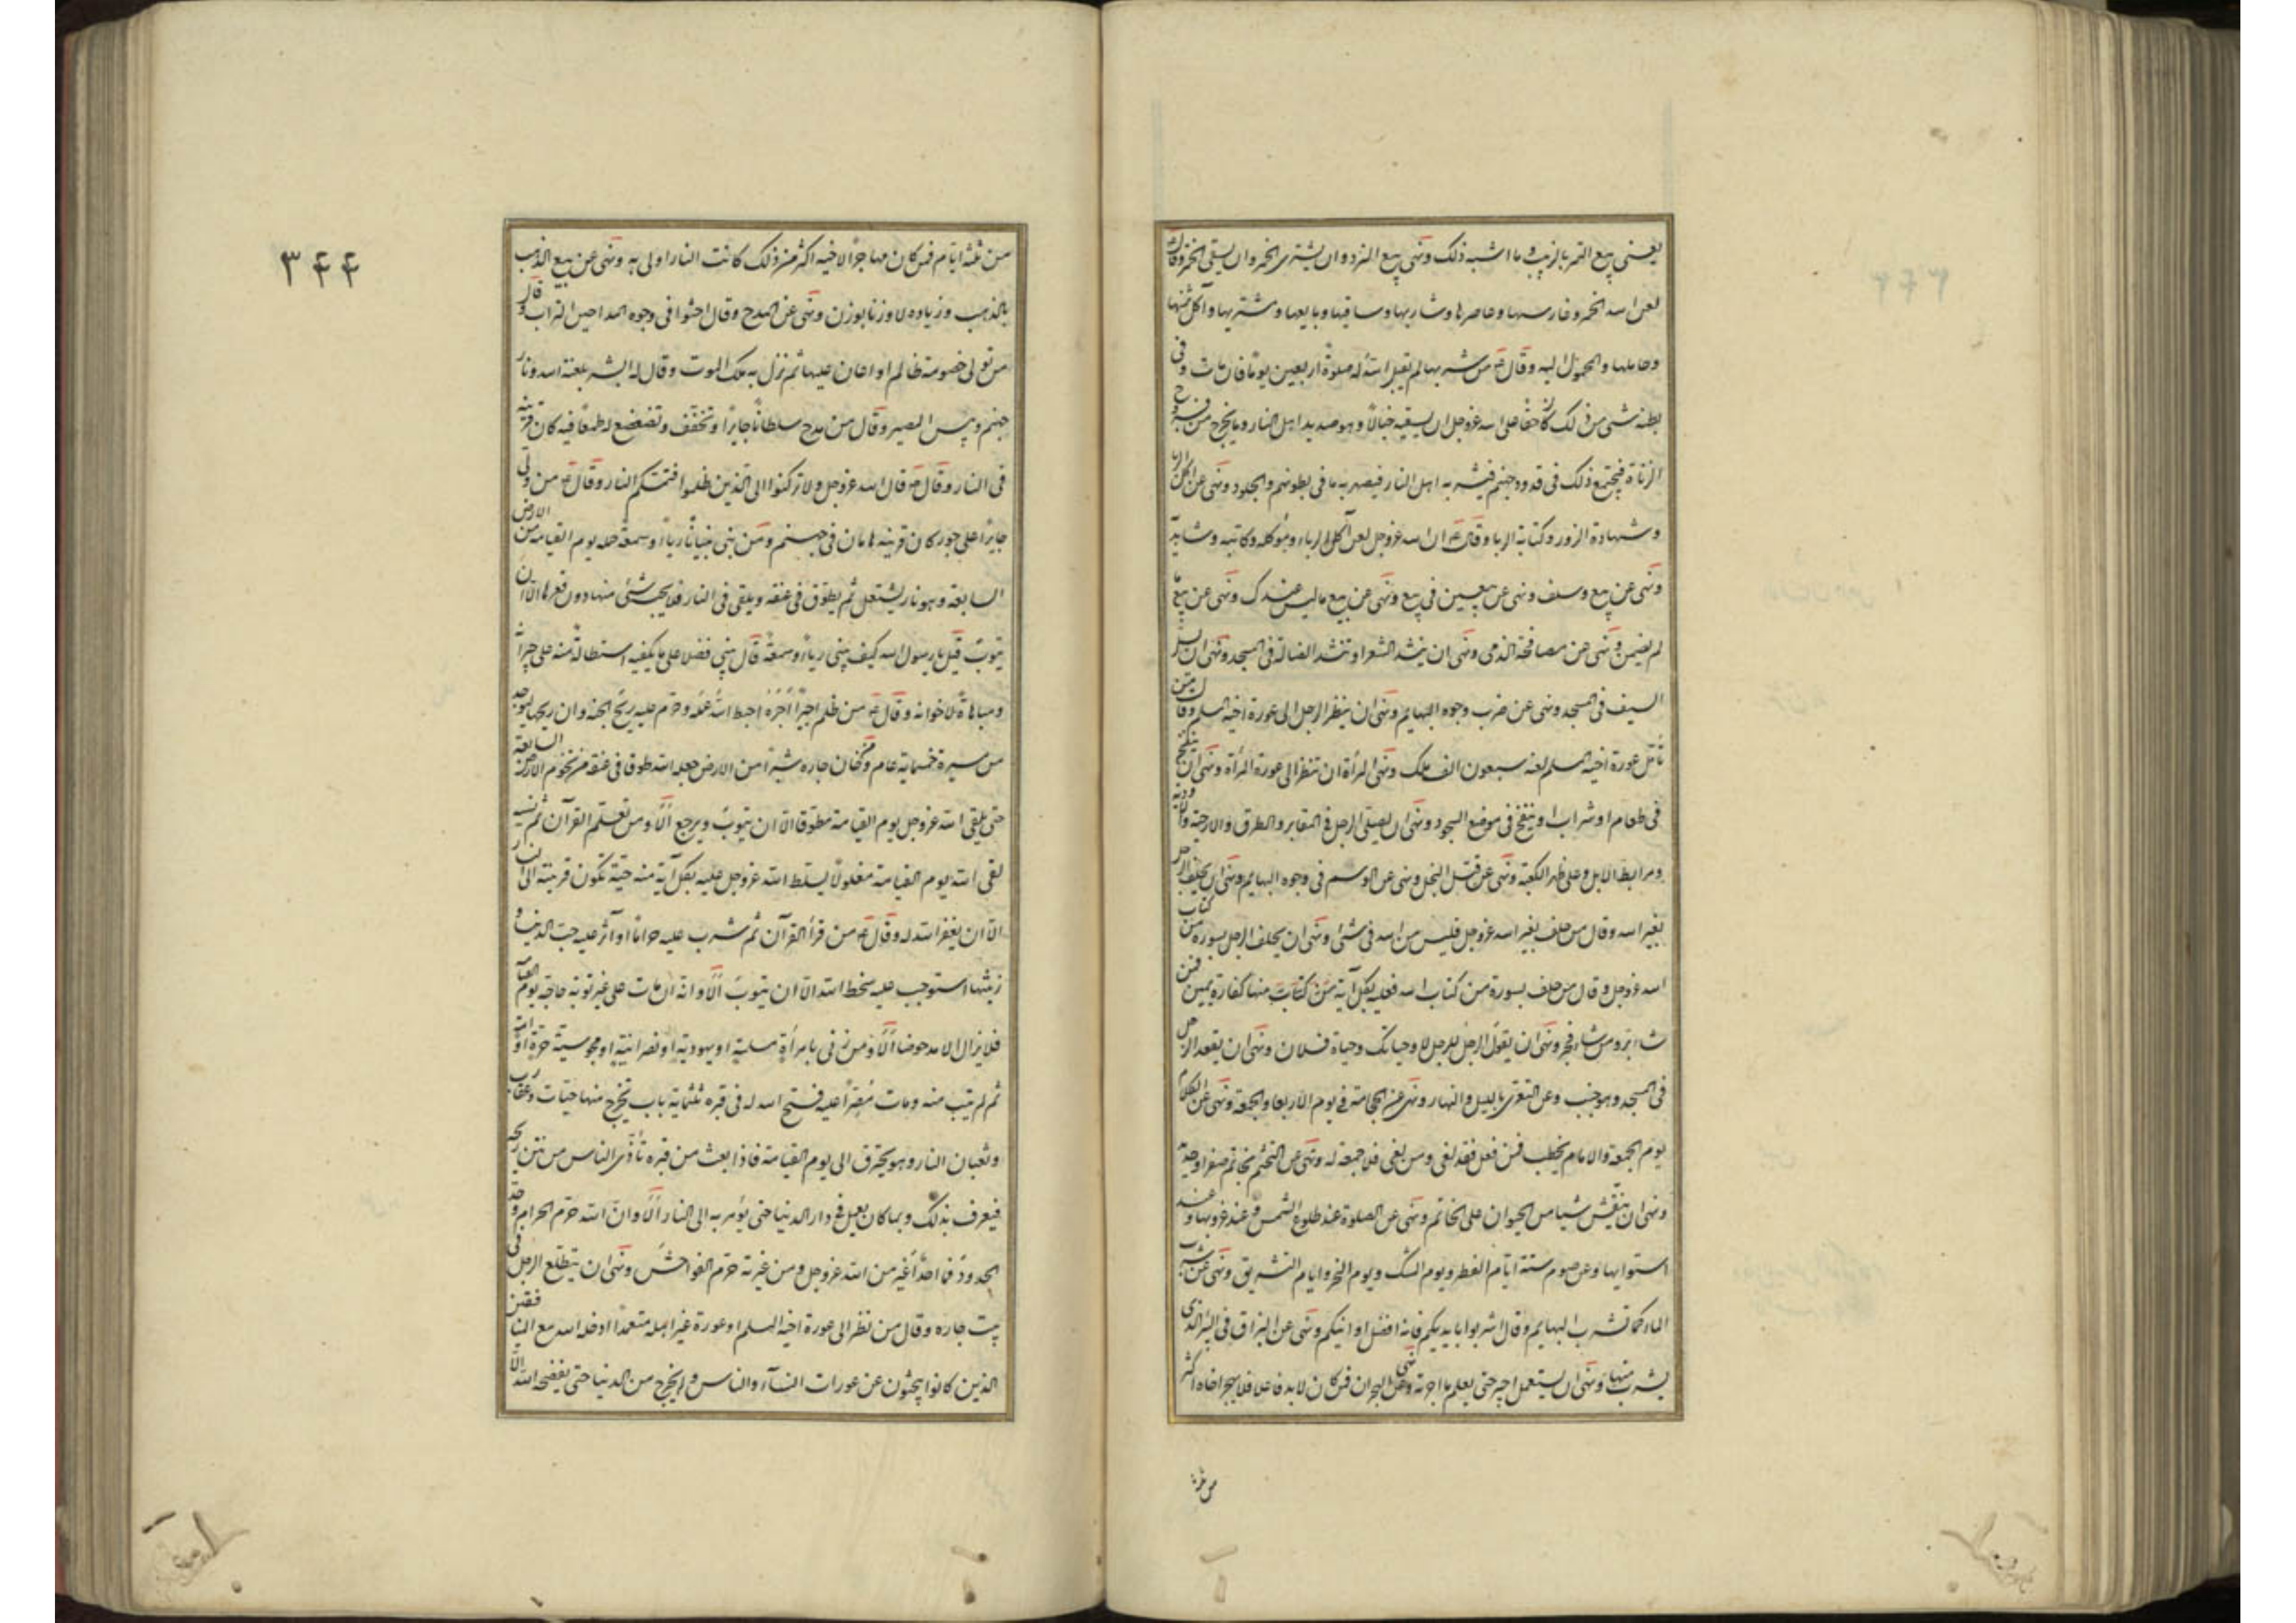 يعنى بيع التمر بالزبيب وما اشبه ذلك ونهى بيع النرد وان يشترى الخمر وان يسقى الخمر وقال
لعن الله الخمر وغارسها وعاصرها وشاربها وساقيها وبايعها ومشتريها وآكل ثمنها
وحاملها والمحمول اليه وقال ع من شربها لم يقبل الله له صلوة اربعين يوما فان مات وفى
بطنه شئ من ذلك كان حقا على الله عزوجل ان يسقيه خبالا وهو صديد اهل النار وما يخرج من فروج
الزناة فيجتمع ذلك فى قدور جهنم فيشربه اهل النار فيصهر به ما فى بطونهم والجلود ونهى عن اكل الربا
وشهادة الزور وكتابة الربا وقال ع ان الله عزوجل لعن آكل الرباء وموكله وكاتبه وشاهديه
ونهى عن بيع وسلف ونهى عن بيعين فى بيع ونهى عن بيع ما ليس عندك ونهى عن بيع ما
لم يضمن ونهى عن مصافحة الذمى ونهى ان ينشد الشعر او تنشد الضالة فى المسجد ونهى ان يسل
السيف فى المسجد ونهى عن ضرب وجوه البهايم ونهى ان ينظر الرجل الى عورة اخيه المسلم وقال من
تأمل عورة اخيه المسلم لعنه سبعون الف ملك ونهى المرأة ان تنظر الى عورة المرأة ونهى ان ينفخ
فى طعام او شراب او ينفخ فى موضع السجود ونهى ان يصلى الرجل فى المقابر والطرق والارحية والاودية
ومرابط الابل وعلى ظهر الكعبة ونهى عن قتل النحل ونهى عن الوسم فى وجوه البهايم ونهى ان يحلف الرجل
بغير الله وقال من حلف بغير الله عزوجل فليس من الله فى شئ ونهى ان يحلف الرجل بسورة من كتاب
الله عزوجل وقال من حلف بسورة من كتاب الله فعليه بكل آية من كتاب منها كفارة يمين فمن
شاء بر ومن شاء فجر ونهى ان يقول الرجل للرجل لا وحياتك وحياة فلان ونهى ان يقعد الرجل
فى المسجد وهو جنب وعن التعرى بالليل والنهار ونهى عن الحجامة فى يوم الاربعا والجمعة ونهى عن الكلام
يوم الجمعة والامام يخطب فمن فعل فقد لغى ومن لغى فلا جمعة له ونهى عن التختم بخاتم صفر او حديد
ونهى ان ينقش شيا من الحيوان على الخاتم ونهى عن الصلوة عند طلوع الشمس وعند غروبها وعند
استوايها وعن صوم ستة ايام الفطر ويوم الشك ويوم النحر وايام التشريق ونهى عن شرب
الماء كما تشرب البهايم وقال اشربوا بايديكم فانه افضل اوانيكم ونهى عن البزاق فى البئر الذى
يشرب منها ونهى ان يستعمل اجير حتى يعلم ما اجرته ونهى عن الهجران فمن كان لا بد فاعلا فلا يهجر اخاه اكثر
من ثلثة
٣٤٤
من ثلثة ايام فمن كان مهاجرا لاخيه اكثر من ذلك كانت النار اولى به ونهى عن بيع الذهب
بالذهب وزيادة لا وزنا بوزن ونهى عن المدح وقال احثوا فى وجوه المداحين التراب وقال
من تولى خصومة ظالم او اعان عليها ثم نزل به ملك الموت وقال له ابشر بلعنة الله ونار
جهنم وبئس المصير وقال من مدح سلطانا جايرا وتخفف وتضعضع له طمعا فيه كان قرينه
فى النار وقال ع قال الله عزوجل ولا تركنوا الى الذين ظلموا فتمسكم النار وقال ع من ولى
جايرا على جور كان قرينه هامان فى جهنم ومن بنى بنيانا رياء وسمعة حمله يوم القيامة من الارض
السابعة وهو نار يشتعل ثم يطوق فى عنقه ويلقى فى النار فلا يحبسه شئ منها دون قعرها الا ان
يتوب قيل يا رسول الله كيف يبنى رياء وسمعة قال يبنى فضلا على ما يكفيه استطالة منه على جيرانه
ومباهاة لاخوانه وقال ع من ظلم اجيرا اجره احبط الله عمله وحرم عليه ريح الجنة وان ريحها ليوجد
من مسيرة خمسماية عام ومن خان جاره شبرا من الارض جعله الله طوقا فى عنقه من تخوم الارض السابعة
حتى يلقى الله عزوجل يوم القيامة مطوقا الا ان يتوب ويرجع الا ومن تعلم القرآن ثم نسيه
لقى الله يوم القيامة مغلولا يسلط الله عزوجل عليه بكل آية منه حية تكون قرينته الى النار
الا ان يغفر الله له وقال ع من قرأ القرآن ثم شرب عليه حراما او آثر عليه حب الدنيا و
زينتها استوجب عليه سخط الله الا ان يتوب الا وانه ان مات على غير توبة حاجه يوم القيامة
فلا يزال الا مدحوضا الا ومن زنى بامرأة مسلمة او يهودية او نصرانية او مجوسية حرة او امة
ثم لم يتب منه ومات مصرا عليه فتح الله له فى قبره ثلثماية باب تخرج منها حيات وعقارب
وثعبان النار وهو يحترق الى يوم القيامة فاذا بعث من قبره تأذى الناس من نتن ريحه
فيعرف بذلك وبما كان يعمل فى دار الدنيا حتى يؤمر به الى النار الا وان الله حرم الحرام وحد
الحدود فما احد اغير من الله عزوجل ومن غيرته حرم الفواحش ونهى ان يتطلع الرجل فى
بيت جاره وقال من نظر الى عورة اخيه المسلم او عورة غير اهله متعمدا ادخله الله مع المنافقين
الذين كانوا يبحثون عن عورات النساء والناس ولم يخرج من الدنيا حتى يفضحه الله الا